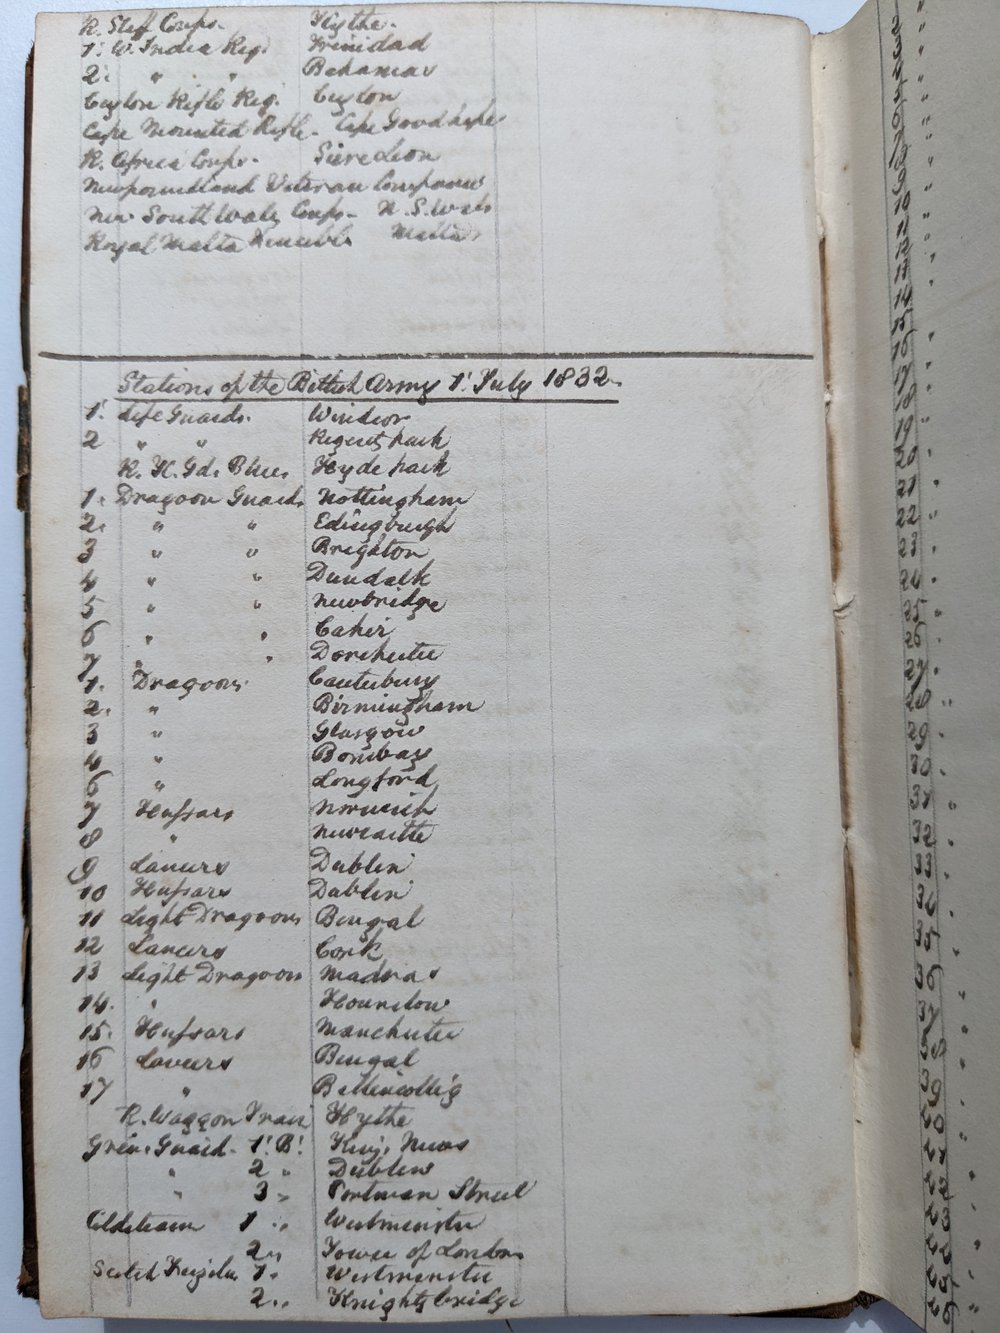 R. Staf Corps. Hythe.
1: W. India Reg: Trinidad
2: " " Bahamas
Ceylon Rifle Reg. Ceylon
Cape Mounted Rifle. Cape Good hope
R. Africa Corps. Siere Leon
Newfoundland Veteran Companies
New South Wales Corps. N. S. Wales
Royal Malta Fencible Malta
Stations of the British Army 1: July 1832.
1: Life Guards. Windsor
2 " " Regents park
R. H. Gds. Blues Hyde park
1. Dragoon Guards Nottingham
2. " " Edingburgh
3 " " Brighton
4 " " Dundalk
5 " " Newbridge
6 " " Cahir
7 " " Dorchester
1. Dragoons Canterbury
2. " Birmingham
3 " Glasgow
4 " Bombay
6 " Longford
7 Hussars Norwich
8 " Newcastle
9 Lancers Dublin
10 Hussars Dublin
11 Light Dragoons Bengal
12 Lancers Cork
13 Light Dragoons Madras
14. " Hounslow
15. Hussars Manchester
16 Lancers Bengal
17 " Bellincollig
R. Waggon Train Hythe
Gren. Guard. 1: B: King. Mews
" 2 " Dublin
" 3 " Portman Street
Coldsteam 1 " Westminster
2 " Tower of London
Scotch Fuzielr 1. Westminster
2 " Knightsbridge
17
18
19
20
21 "
22 "
23 "
24 "
25 "
26 "
27 "
28 "
29 "
30 "
31 "
32 "
33 "
34 "
35 "
36 "
37 "
38 "
39 "